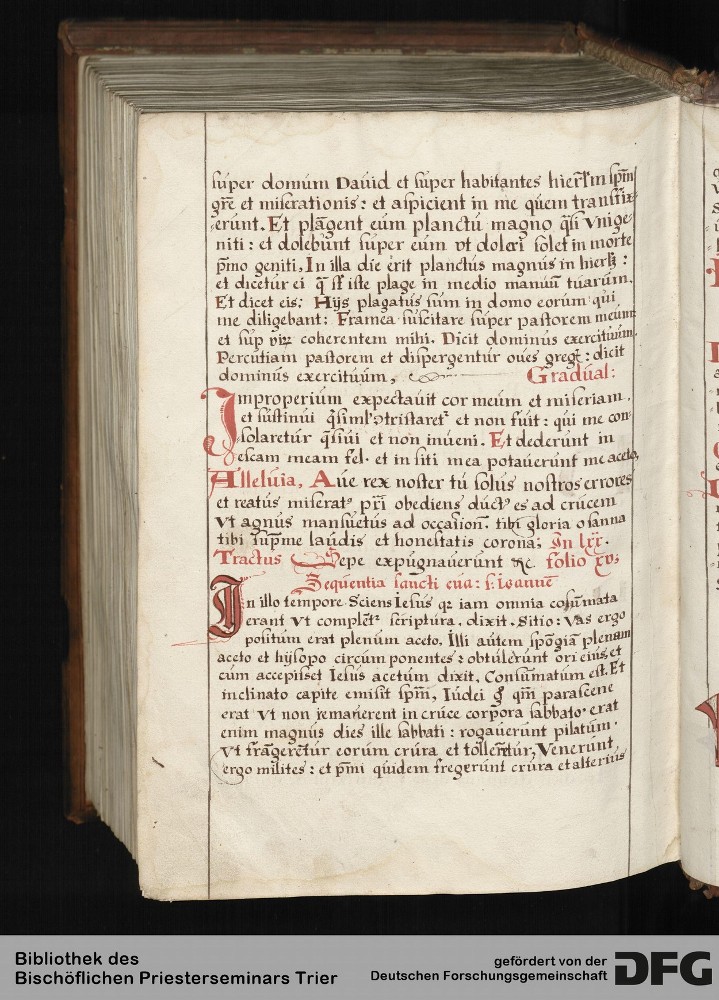 super domum Dauid et super habitantes hierl̃m sp̃m
gr̃e et miserationis: et aspicient in me quem transfix
erunt. Et plãgent eum planctu magno q̃si vnige
niti: et dolebunt super eum vt doleri solet in morte
p̃mo geniti, In illa die erit planctus magnus in hierlꝫ:
et dicetur ei q̃ st̃ iste plage in medio manuũ tuarum.
Et dicet eis: Hijs plagatus sum in domo eorum qui
me diligebant: Framea suscitare super pastorem meum
et sup coherentem mihi. Dicit dominus exercituum.
Percutiam pastorem et dispergentur oues greg̃: dicit
dominus exercituum,
Gradual:
Improperium expectauit cor meum et miseriam.
et sustinui q̃siml̕ ↄtristaret᷑ et non fuit: qui me con
solaretur q̃siui et non inueni. Et dederunt in
escam meam fel. et in siti mea potauerunt me aceto,
Alleluia, Aue rex noster tu solus nostros errores
et reatus miserat᷒ pr̃i obediens duct᷒ es ad crucem
Vt agnus mansuetus ad occasionẽ. tibi gloria osanna
tibi sup̃me laudis et honestatis corona; In lxx.
Tractus Sepe expugnauerunt ⁊c. folio xv;
Sequentia sancti eua: s: ioannẽ
In illo tempore Sciens Iesus qz iam omnia cõsũmata
erant vt complet᷑ scriptura. dixit. Sitio: Vas ergo
positum erat plenum aceto. Illi autem spõgiã plenam
aceto et hysopo circum ponentes: obtulerunt ori eius, et
cum accepisset Iesus acetum dixit. Consumatum est. Et
inclinato capite emisit sp̃m, Iudei g̊ qm̃ parascene
erat Vt non remanerent in cruce corpora sabbato. erat
enim magnus dies ille sabbati: rogauerunt pilatum.
Vt frãgerẽtur eorum crura et tollerẽtur, Venerunt
ergo milites: et p̃mi quidem fregerunt crura et alterius
Bibliothek des
Bischöflichen Priesterseminars Trier
gefördert von der
Deutschen Forschungsgemeinschaft
DFG